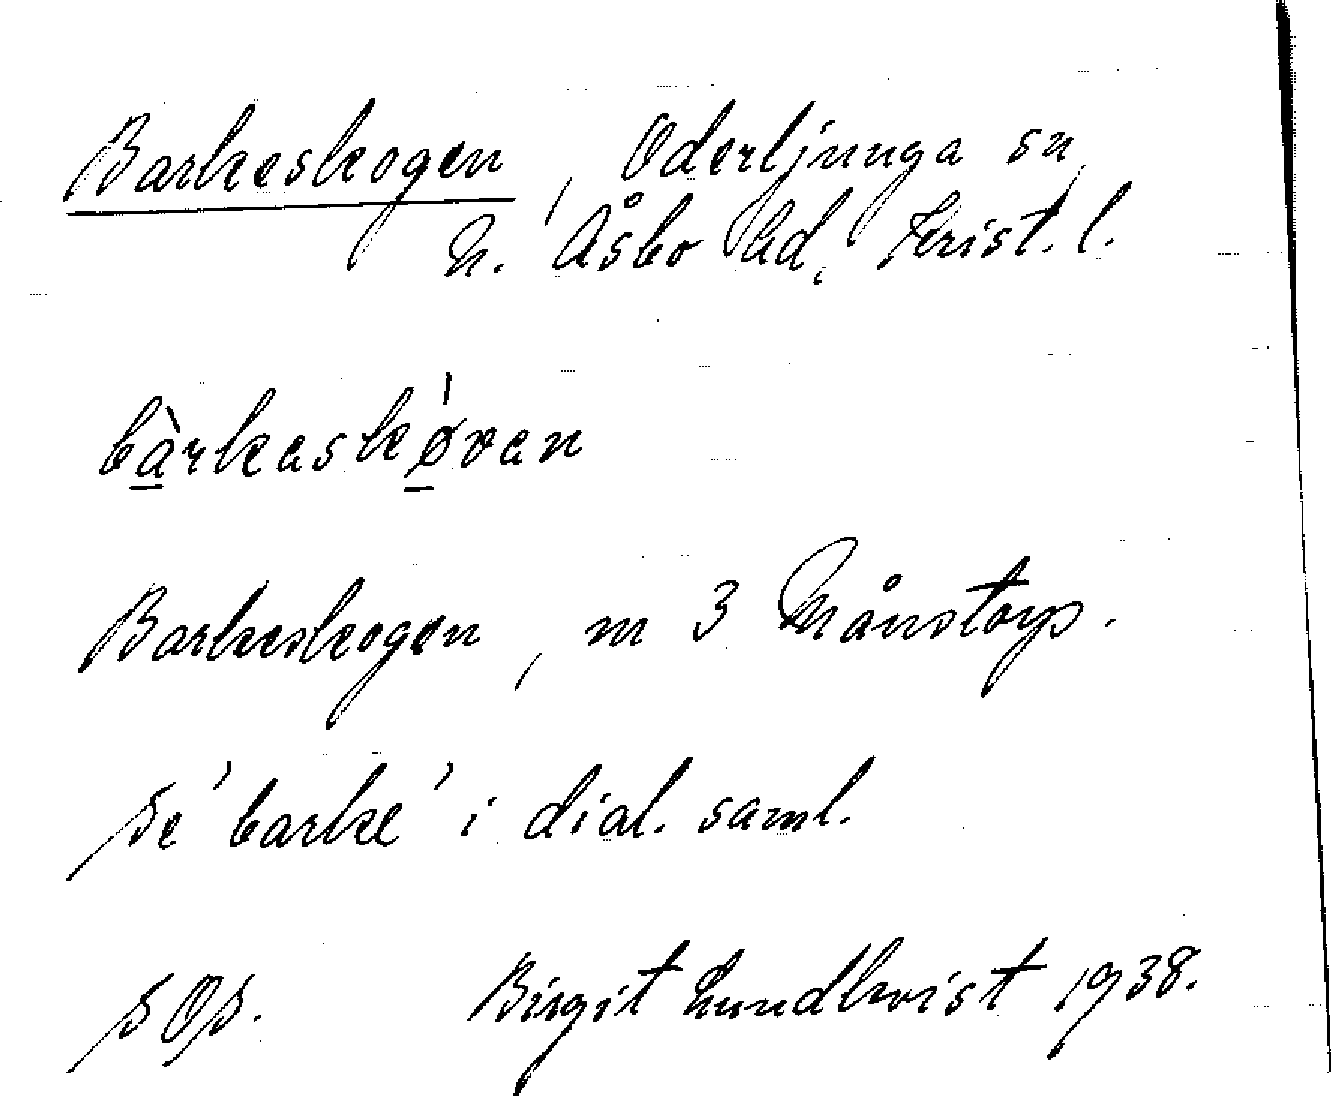 Barkeskogen, Oderljunga sn,
N. Åsbo hd, Krist. l.
bàrkaskǿvan
Barkeskogen, m 3 Månstorp.
Se 'barke' i dial. saml.
SOS. Birgit Lundkvist 1938.